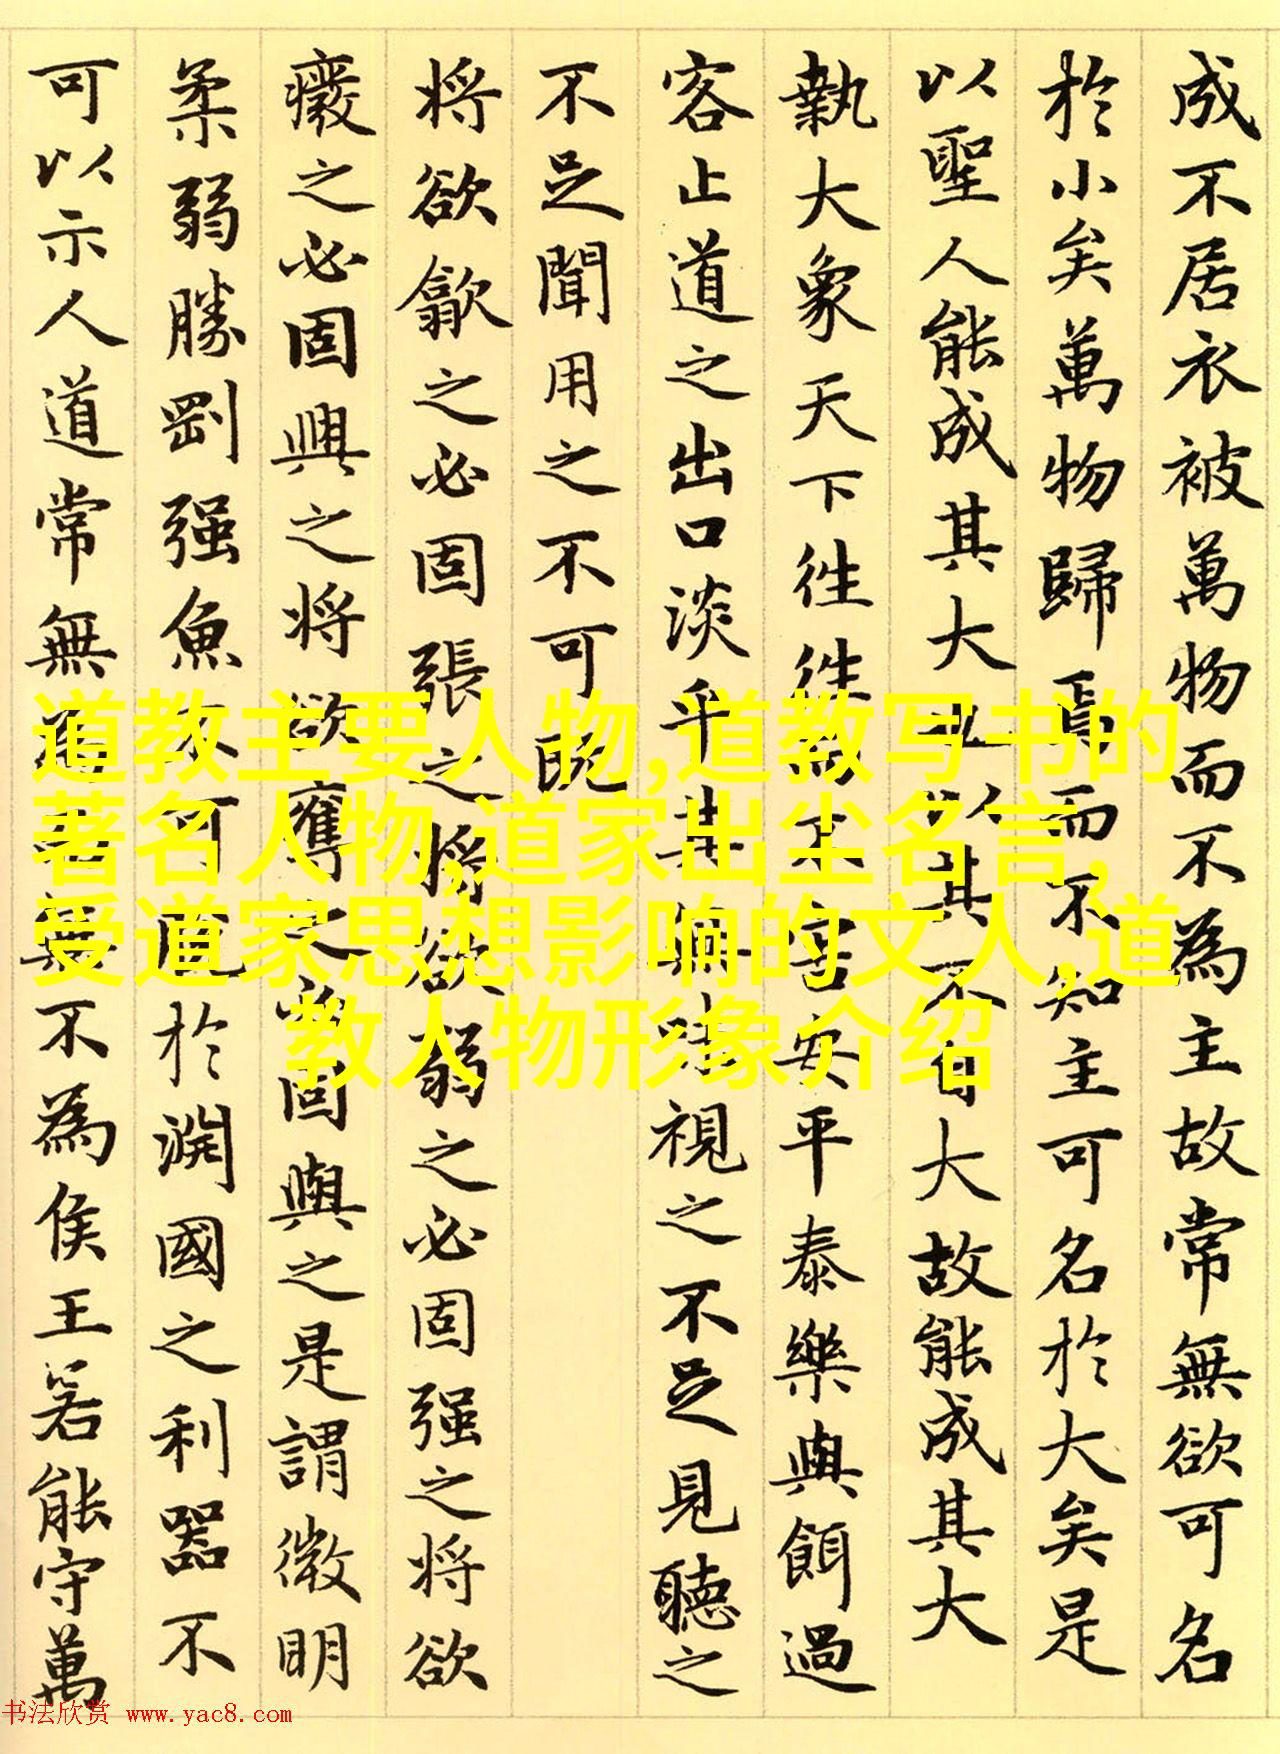 成不居衣被萬物而不為主故常無欲可名
於小矣萬物歸焉而不知主可名於大矣是
以聖人能成其大也以其不自大故能成其大
執大象天下往往而不害安平泰樂與餌過
客止道之出口淡乎其無味視之不足見聽之
不足聞用之不可既
将欲歙之必固張之将欲弱之必固强之将欲
癈之必固興之将欲奪之必固與之是謂微明
柔弱勝剛强魚不可脱於淵國之利器不
可以示人道常無為而無不為侯王若能守萬
道教主要人物,道教写书的
著名人物,道家出尘名言,
受道家思想影响的文人,道
教人物形象介绍
书法欣赏 www.yac8.com